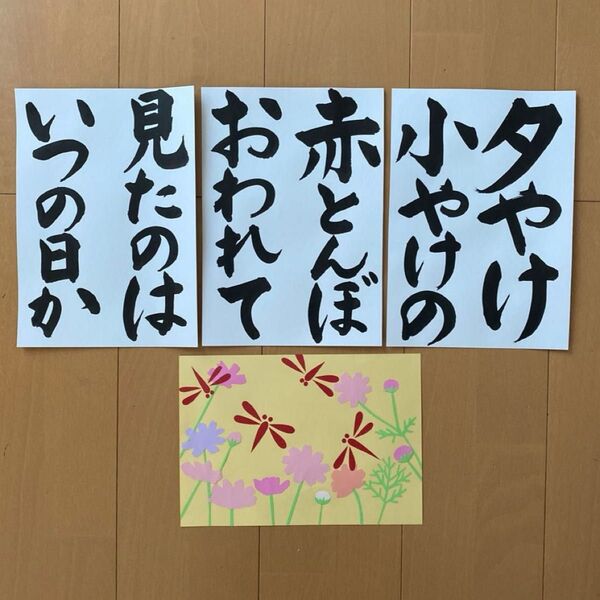 夕やけ
小やけの
赤とんぼ
おわれて
見たのは
いつの日か